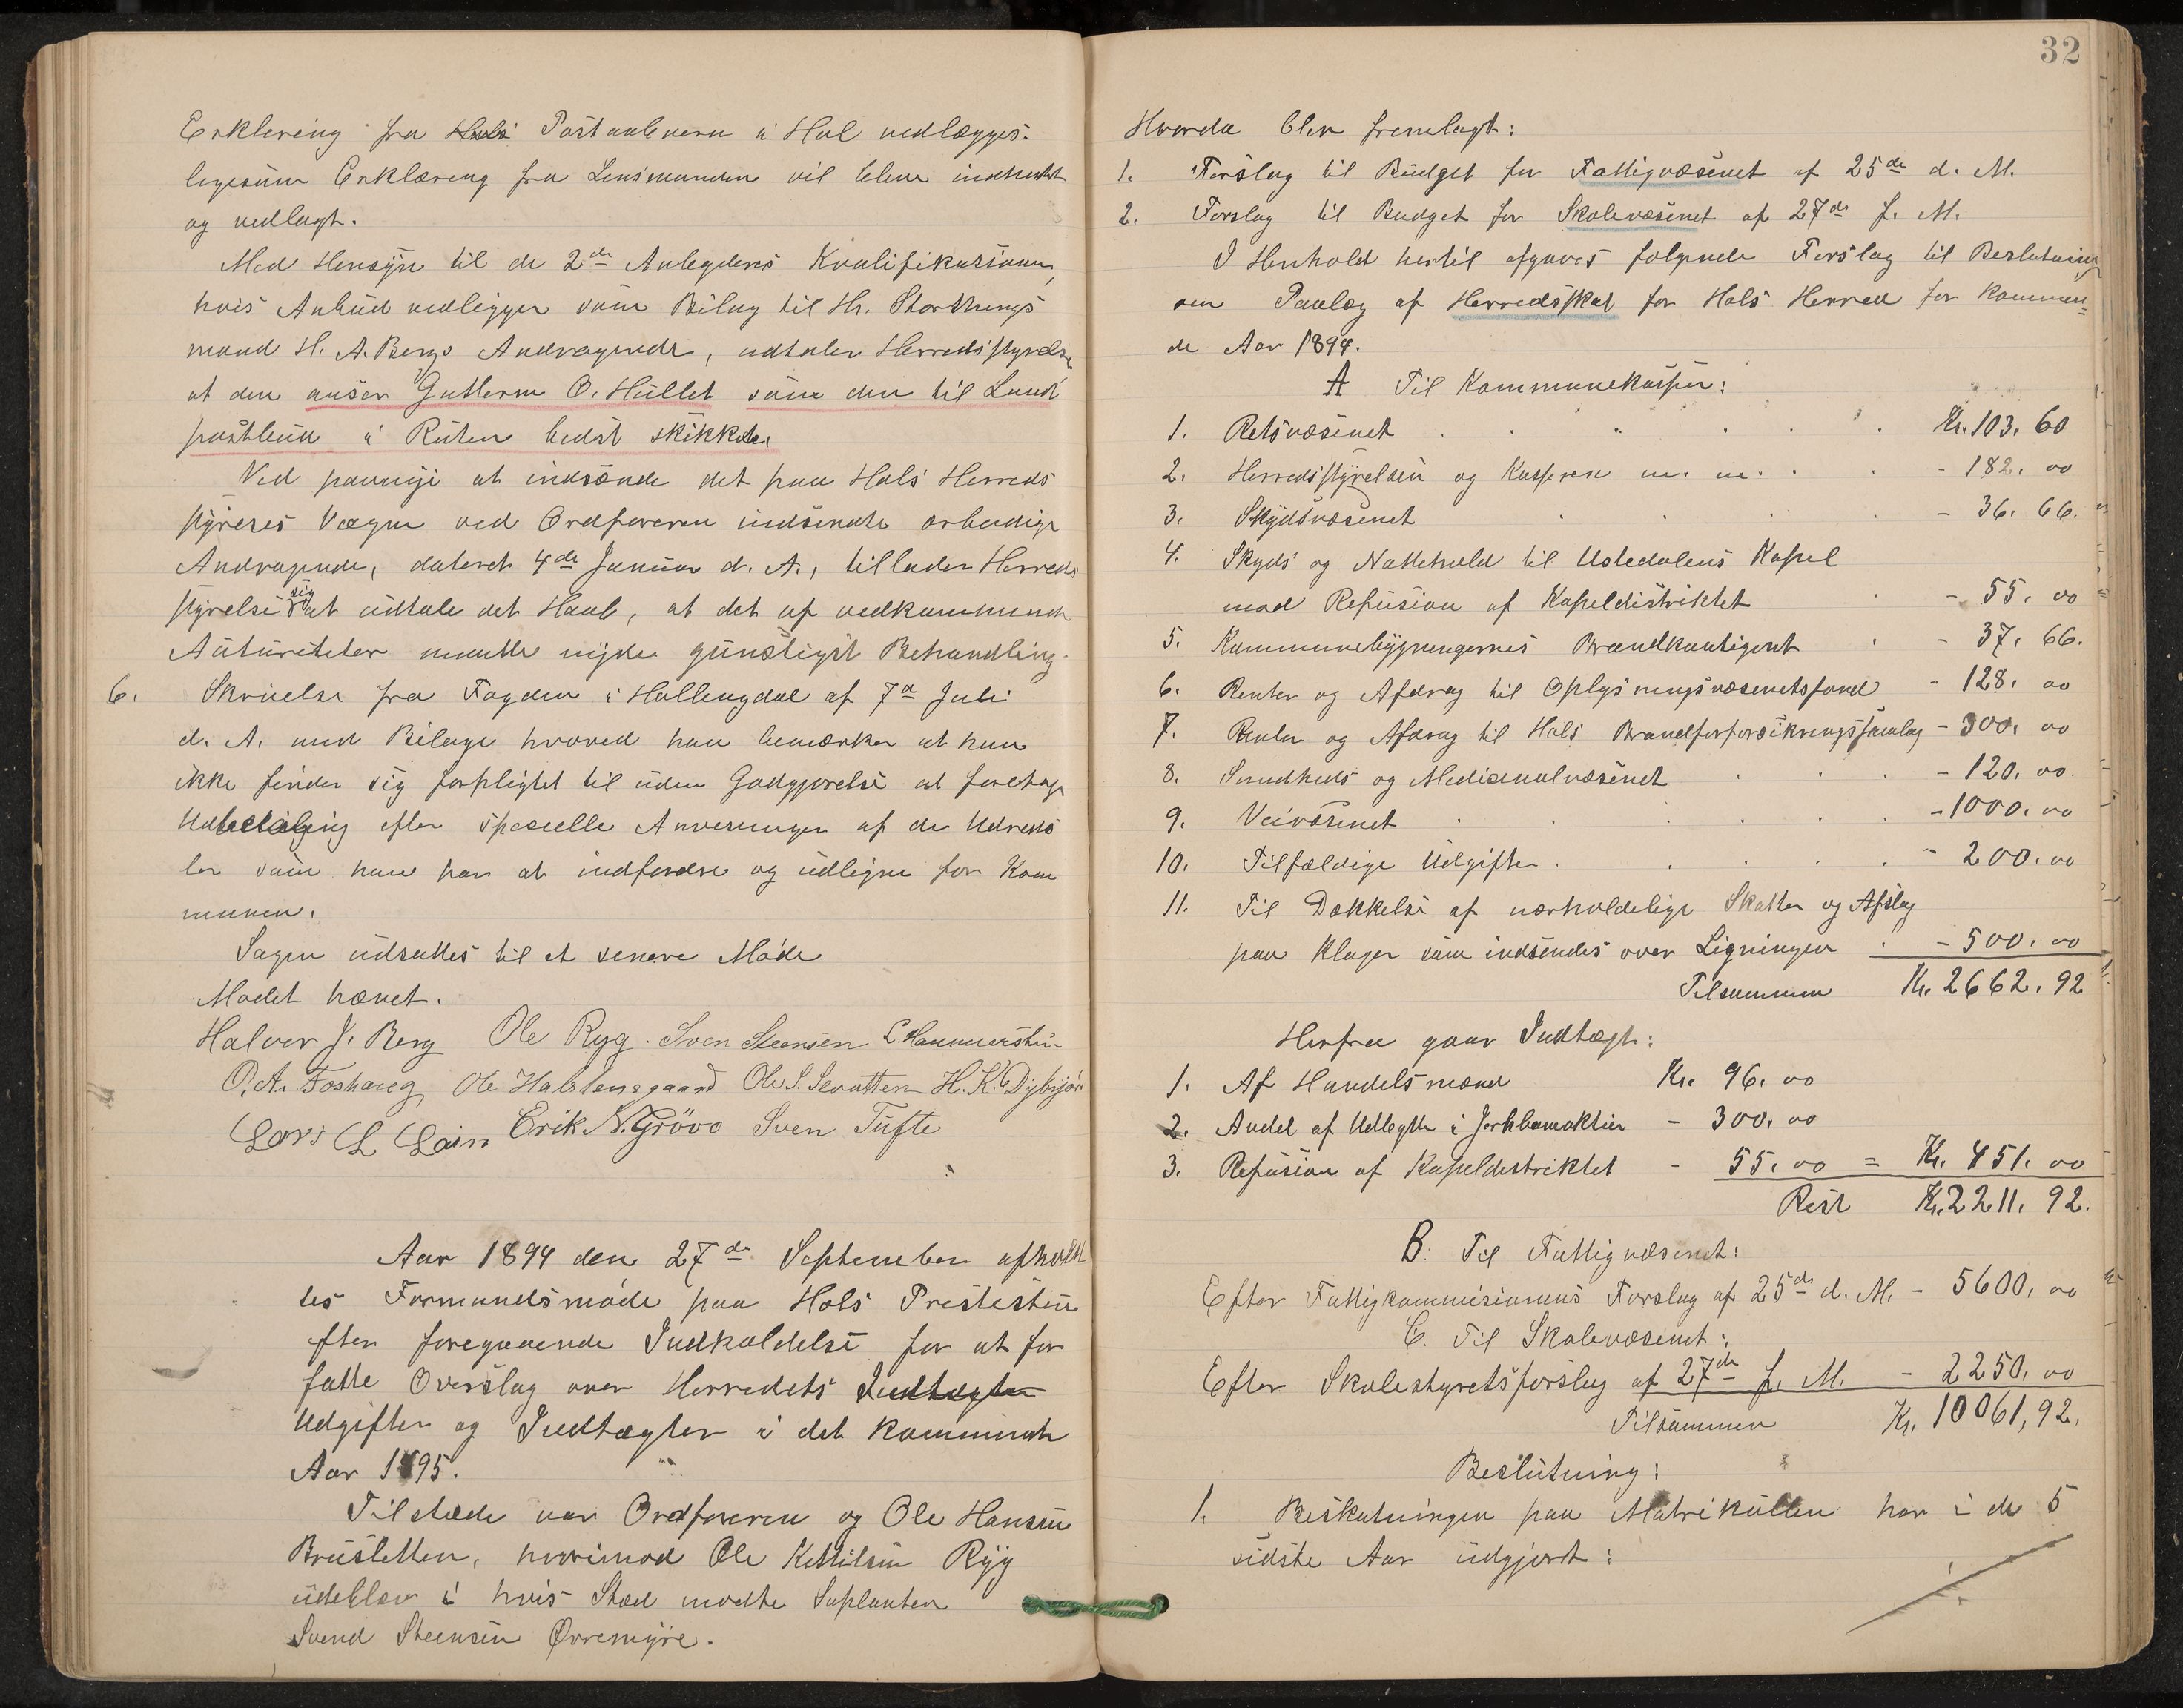 Erklering fra Hols Postaabnern i Hol vedlægges.
ligesom Erklæreng fra Lensmanden vil blive indhentet
og vedlagt.
Med Hensyn til de 2de Anbyderes Kvalifikasioner,
hvis Anbud vedligger som Bilag til Hr. Storthings
mand H. A. Bergs Andragende, udtaler Herredsstyrelsen
at den anser Guttorm O. Hullet som den til Land
postbud i Ruten bedst skikkede.
Ved paany at indsende det paa Hols Herreds
styreses Vægne ved Ordføreren indsendte ærbødige
Andragende, dateret 4de Januar d. A., tillader Herreds
styrelse sig at udtale det Haab, at det af vedkommende
Auturiteter maatte nyde gunstigst Behandling.
6. Skrivelse fra Fogden i Hallingdal af 7de Juli
d. A. med Bilage hvoved han bemærker at han
ikke finder sig forpligtet til uden Godgjørelse at foretage
Udbetaling efter spesielle Anvisninger af de Udreds
ler som han har at indfordre og udligne for Kom
munen.
Sagen udsattes til et senere Møde
Mødet hævet.
Halvor J. Berg Ole Ryg. Sven Steensen L. Hammersbø
O. A. Foshaug Ole Halstensgaard Ole S. Sevatten H. K. Dybsjor
Lars L Lein Erik N. Grövo Sven Tufte
Aar 1894 den 27de September afhold
tes Formandsmøde paa Hols Prestestue
efter foregaaende Indkaldelse for at for
fatte Overslag over Herredets Indtægter
Udgifter og Indtægter i det kommende
Aar 1895.
Tilstæde var Ordføreren og Ole Hansen
Brusletten, hvorimod Ole Kittilsen Ryg
udeblev i hvis Sted mødte Suplanten
Svend Steensen Øvremyre.
32
Hvorda blev fremlagt:
1. Forslag til Budget for Fattigvæsenet af 25de d. M.
2. Forslag til Budget for Skolevæsenet af 27de f. M.
I Henhold hertil afgaves følgende Forslag til Beslutning
om Paalæg af Herredsskat for Hols Herred for kommen=
de Aar 1894.
A Til Kommunekassen:
1. Retsvæsenet Kr. 103. 60
2. Herredsstyrelsen og Kasseren m. m. - 182. 00
3. Skydsvæsenet - 36. 66.
4. Skyds og Nattehold til Ustedalens Kapel
mod Refusion af Kapeldistriktet - 55. 00
5. Kommunebygningernes Brandkontigent - 37. 66.
6. Renter og Afdrag til Oplysningsvæsenetsfond - 128. 00
7. Renter og Afdrag til Hols Brandforforsikringsselskab - 300. 00
8. Sundheds og Medicinalvæsenet - 120. 00
9. Veivæsenet - 1000. 00
10. Tilfældige Udgifter - 200. 00
11. Til Dækkelse af uerholdelige Skatter og Afslag
paa Klager som indsendes over Ligningen - 500. 00
Tilsammen Kr. 2662. 92
Herfra gaar Indtægt:
1. Af Handelsmænd Kr. 96. 00
2. Andel af Udbytte i Jernbaneaktier - 300. 00
3. Refusion af Kapeldistriktet - 55. 00 = Kr. 451. 00
Rest Kr. 2211. 92.
B. Til Fattigvæsenet:
Efter Fattigkommisionens Forslag af 25de d. M. - 5600. 00
C. Til Skolevæsenet:
Efter Skolestyretsforslag af 27de f. M. - 2250. 00
Tilsammen Kr. 10061,92.
Beslutning:
1. Beskatningen paa Matrikullen har i de 5
sidste Aar udgjort: